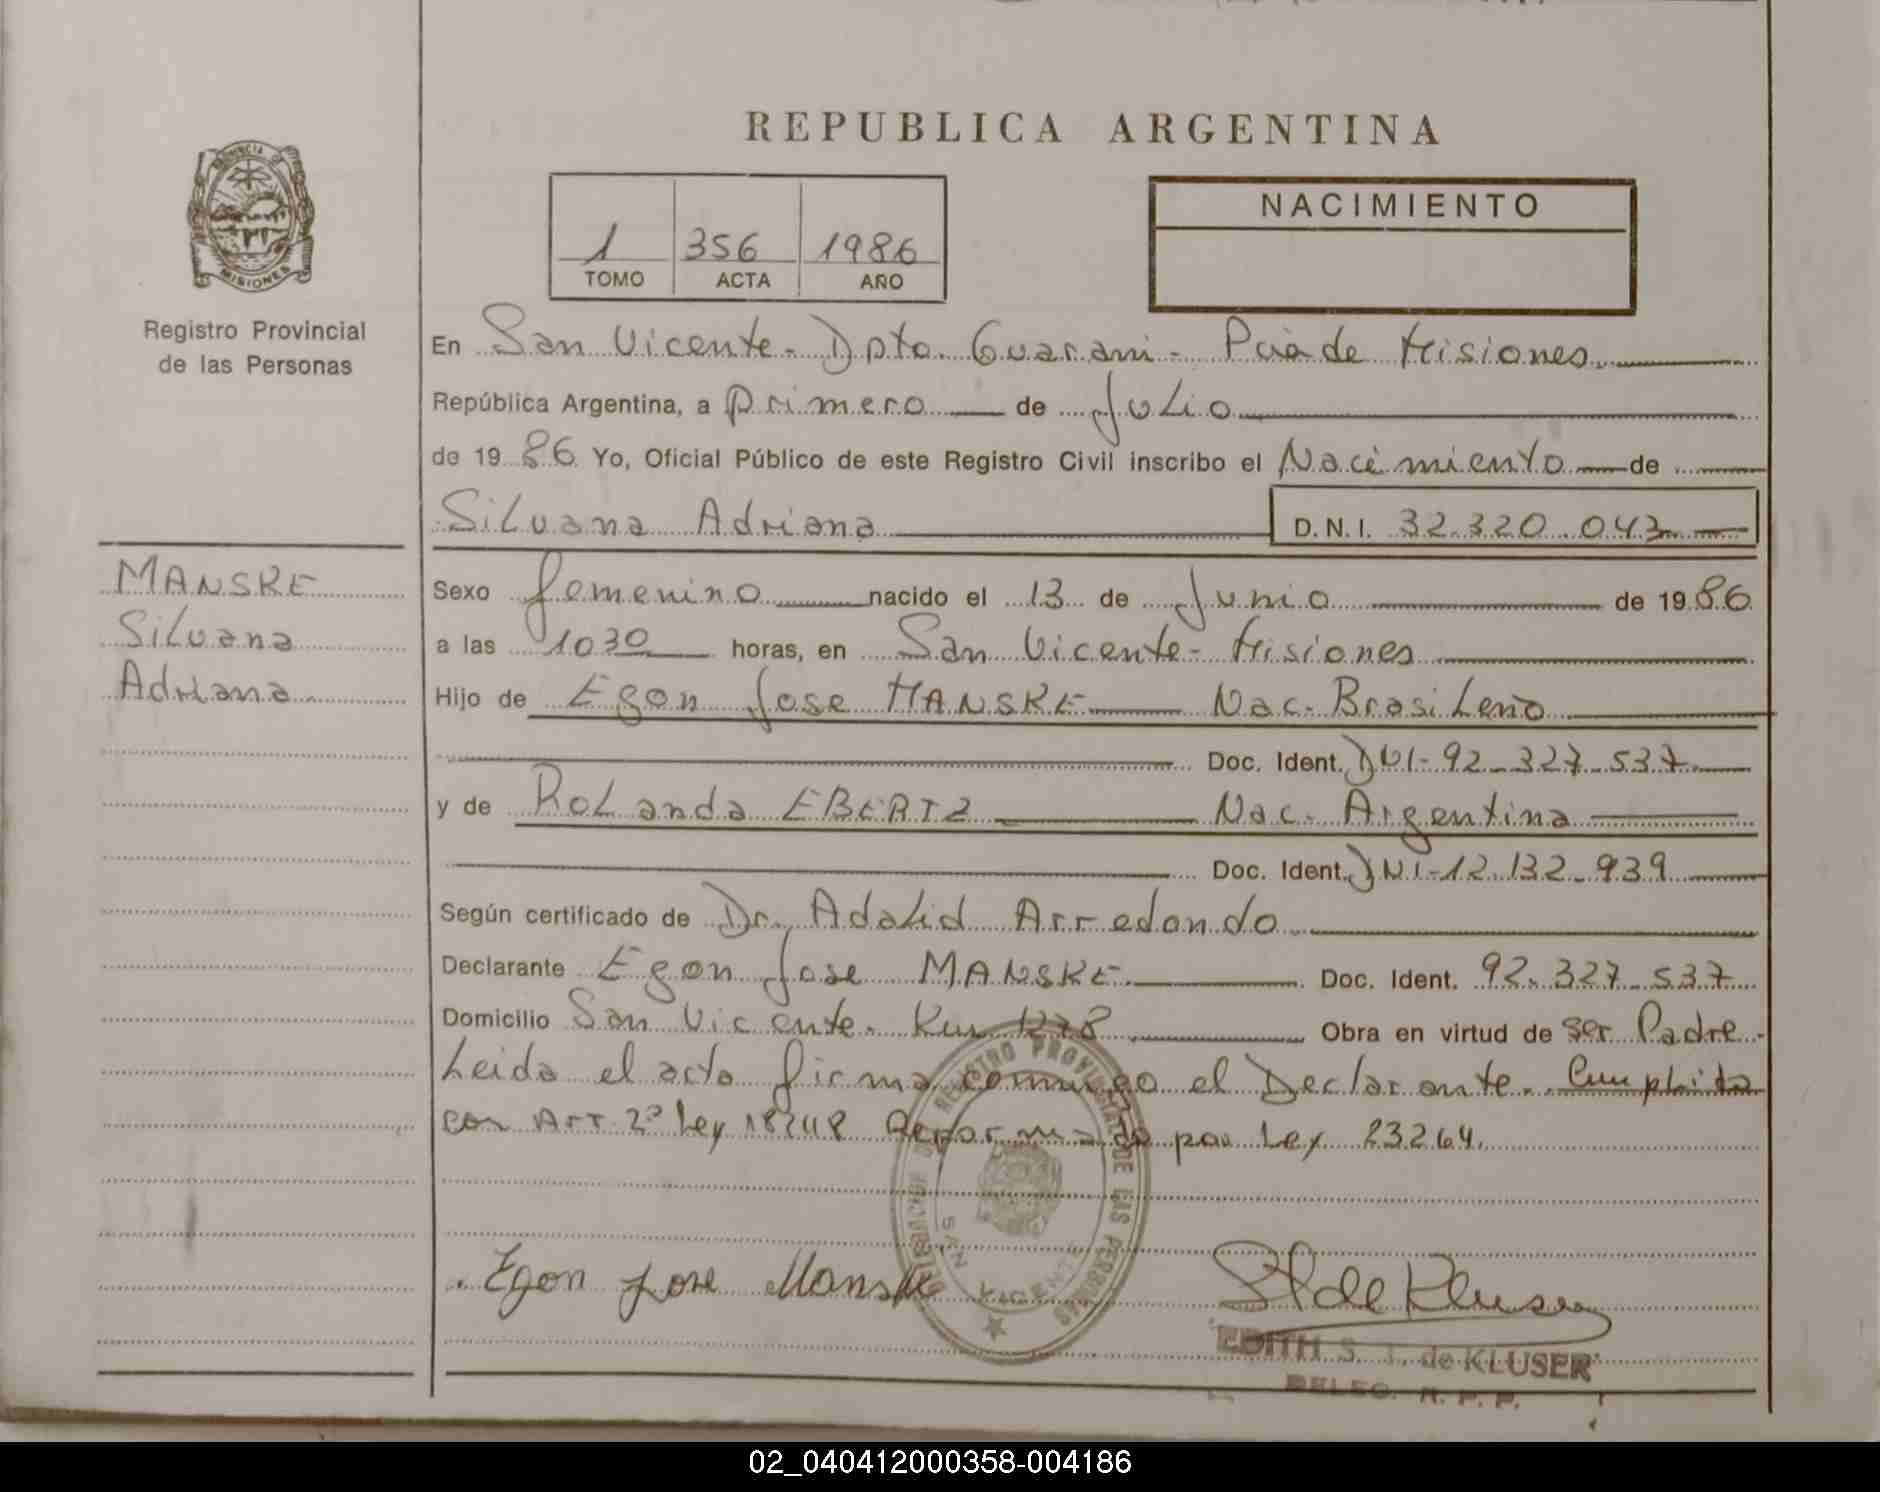 REPUBLICA ARGENTINA
PROVINCIA DE
MISIONES
Registro Provincial
de las Personas
1 356 1986
TOMO ACTA AÑO
NACIMIENTO
En San Vicente - Dpto. Guarani - Pcia de Misiones.
República Argentina, a primero de Julio
de 1986 Yo, Oficial Público de este Registro Civil inscribo el Nacimiento de
Silvana Adriana D.N.I. 32.320.043
MANSKE
Silvana
Adriana
Sexo femenino nacido el 13 de Junio de 1986
a las 1030 horas, en San Vicente - Misiones
Hijo de Egon Jose MANSKE Nac. Brasileño
Doc. Ident. DNI-92-327-537
y de Rolanda EBERTZ Nac. Argentina
Doc. Ident. DNI-12.132.939
Según certificado de Dr. Adalid Arredondo
Declarante Egon Jose MANSKE. Doc. Ident. 92.327.537
Domicilio San Vicente. Km 1278 Obra en virtud de ser Padre
Leida el acta firma conmigo el Declarante.
con Art. 2º Ley 18248 Reformado por Ley 23264.
REGISTRO PROVINCIAL DE LAS PERSONAS
SAN VICENTE
Egon Jose Manske
de Kluser
EDITH S. de KLUSER
DELEG. R. P. P.
02_040412000358-004186